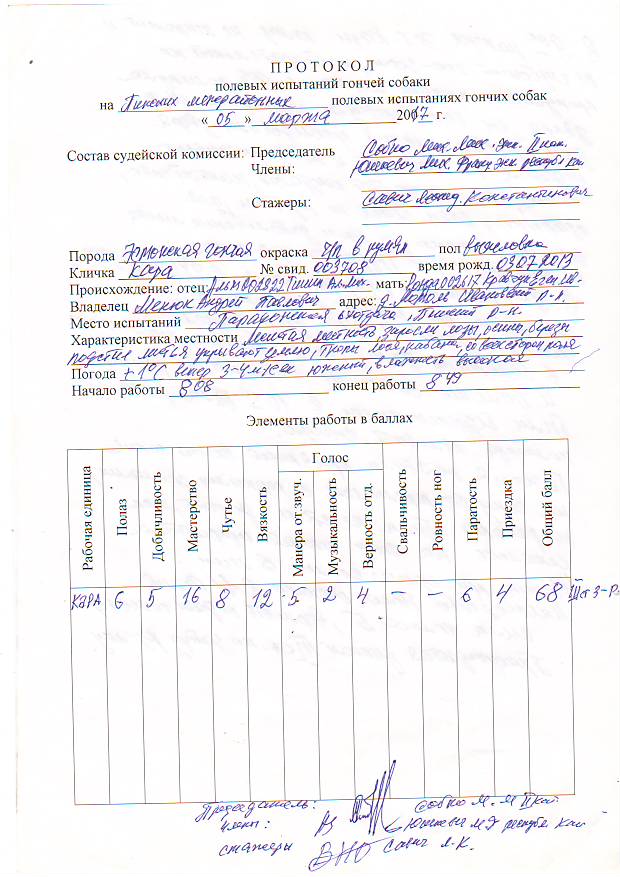 ПРОТОКОЛ
полевых испытаний гончей собаки
на Пинских межрайонных полевых испытаниях гончих собак
« 05 » марта 2017 г.
Состав судейской комиссии: Председатель Собко Мих. Мих.
Члены: Юшкевич Мих. Франц.
Стажеры: Савич Леонид. Константинович
Порода Эстонская гончая окраска ч/п в румян. пол выжловка
Кличка Кара № свид. 003708 время рожд. 03.07.2013
Происхождение: отец: мать:
Владелец Менюк Андрей Павлович адрес: д. Мотоль Ивановский р-н.
Место испытаний охотдача, Пинский р-н.
Характеристика местности местность, заросли лозы, осины, березы
подстил листья укрывают землю, тропы лося, кабана, со всех сторон поля
Погода +1°С ветер 3-4 м/сек южный, влажность высокая
Начало работы 8 08 конец работы 8 49
Элементы работы в баллах
Рабочая единица Полаз Добычливость Мастерство Чутье Вязкость Голос Манера от.звуч. Музыкальность Верность отд. Свальчивость Ровность ног Паратость Приездка Общий балл
КАРА 6 5 16 8 12 5 2 4 – – 6 4 68 III ст
Председатель: Собко М. М. II кат
члены: Юшкевич М Ф республ кат
стажеры Савич Л. К.